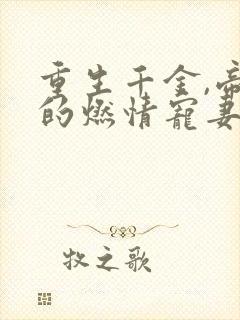 重生千金,帝
的燃情宠妻
牧之歌